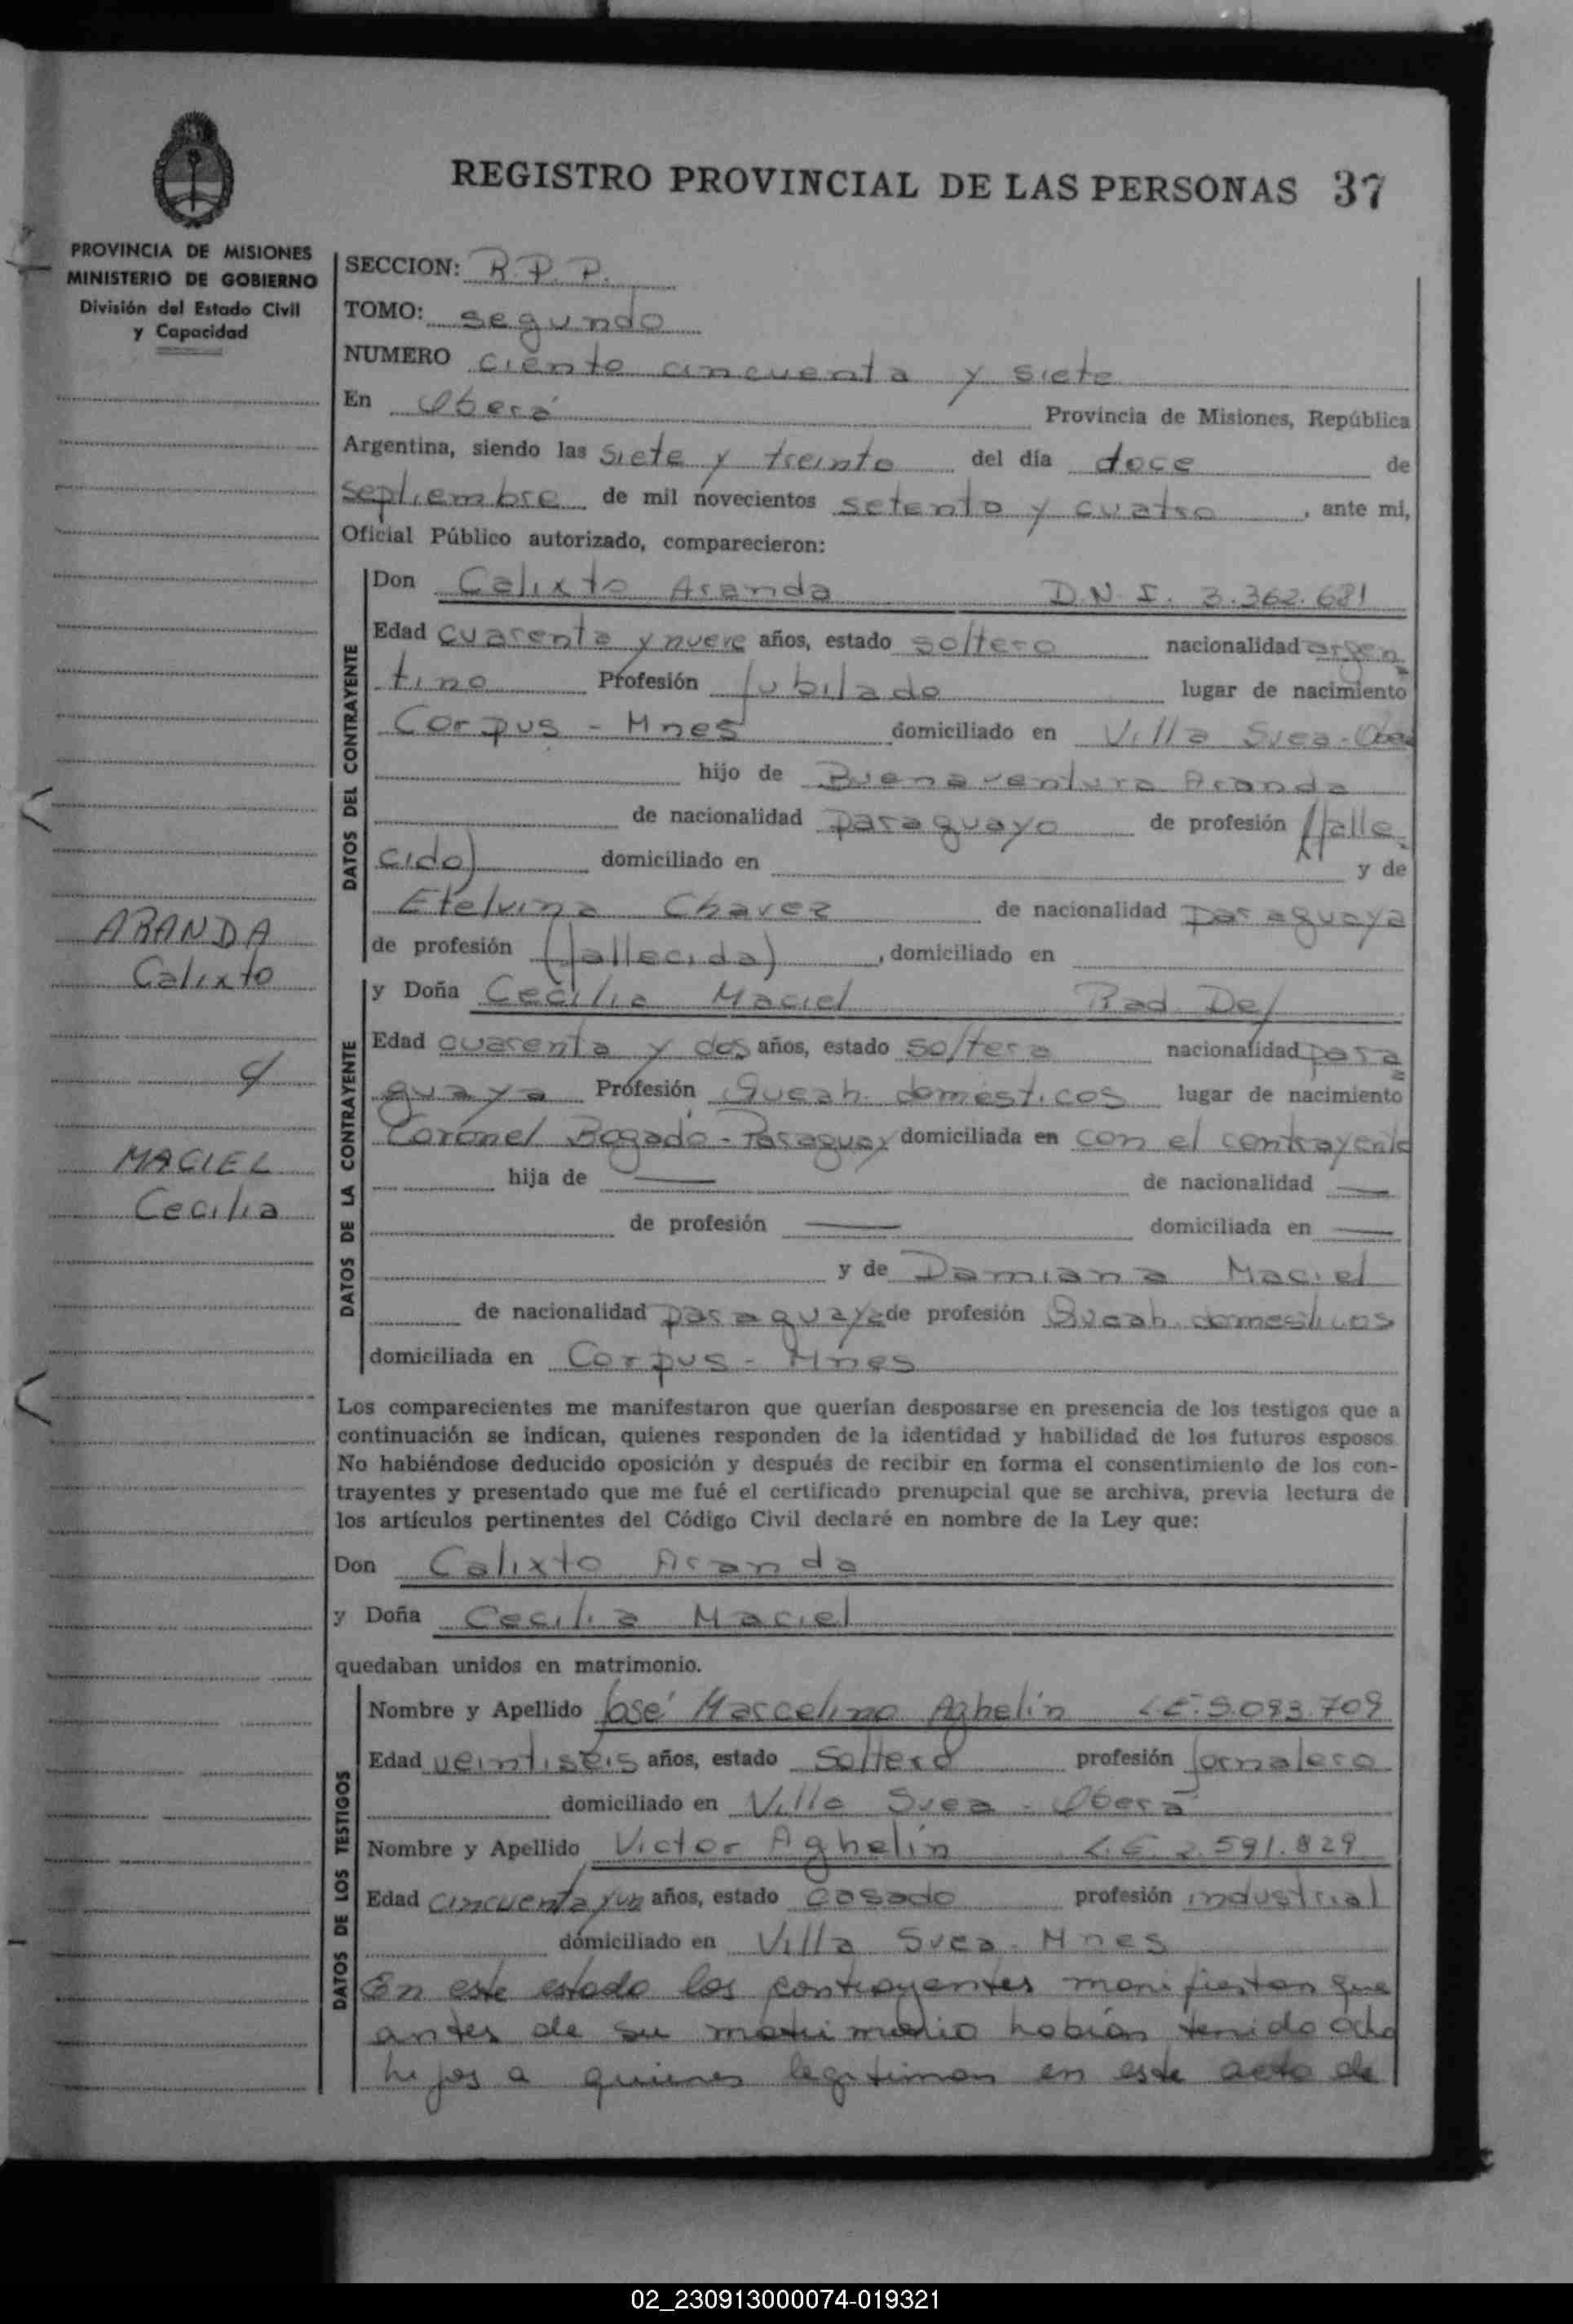 REGISTRO PROVINCIAL DE LAS PERSONAS 37
PROVINCIA DE MISIONES
MINISTERIO DE GOBIERNO
División del Estado Civil
y Capacidad
SECCION: R.P.P.
TOMO: segundo
NUMERO ciento cincuenta y siete
En Oberá Provincia de Misiones, República
Argentina, siendo las siete y treinta del día doce de
septiembre de mil novecientos setenta y cuatro, ante mi,
Oficial Público autorizado, comparecieron:
DATOS DEL CONTRAYENTE
Don Calixto Aranda D.N.I. 3.362.681
Edad cuarenta y nueve años, estado soltero nacionalidad argen
tino Profesión jubilado lugar de nacimiento
Corpus - Mnes domiciliado en Villa Svea - Oberá
hijo de Buenaventura Aranda
de nacionalidad paraguayo de profesión (falle
cido) domiciliado en y de
Etelvina Chavez de nacionalidad paraguaya
de profesión (fallecida), domiciliado en
ARANDA
Calixto
c/
MACIEL
Cecilia
DATOS DE LA CONTRAYENTE
y Doña Cecilia Maciel Rad. Def
Edad cuarenta y dos años, estado soltera nacionalidad para
guaya Profesión Queah. domésticos lugar de nacimiento
Coronel Bogado - Paraguay domiciliada en con el contrayente
hija de — de nacionalidad —
de profesión — domiciliada en —
y de Damiana Maciel
de nacionalidad paraguaya de profesión Queah. domesticos
domiciliada en Corpus - Mnes
Los comparecientes me manifestaron que querían desposarse en presencia de los testigos que a
continuación se indican, quienes responden de la identidad y habilidad de los futuros esposos.
No habiéndose deducido oposición y después de recibir en forma el consentimiento de los con-
trayentes y presentado que me fué el certificado prenupcial que se archiva, previa lectura de
los artículos pertinentes del Código Civil declaré en nombre de la Ley que:
Don Calixto Aranda
y Doña Cecilia Maciel
quedaban unidos en matrimonio.
DATOS DE LOS TESTIGOS
Nombre y Apellido José Marcelino Aghelin L.E. 5.083.709
Edad veintiseis años, estado soltero profesión jornalero
domiciliado en Villa Svea - Oberá
Nombre y Apellido Victor Aghelin L.E. 2.591.829
Edad cincuenta y un años, estado casado profesión industrial
domiciliado en Villa Svea - Mnes
En este estado los contrayentes manifiestan que
antes de su matrimonio habían tenido ocho
hijos a quienes legitiman en este acto de
02_230913000074-019321